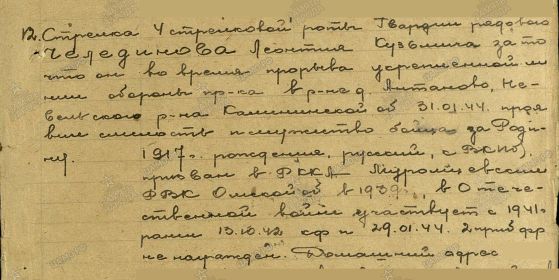 12. Стрелка 4 стрелковой роты Гвардии рядового
Челединова Леонтия Кузьмича за то
что он во время прорыва укрепленной ли
нии обороны пр-ка в р-не д. Антаново, Не-
вельского р-на Калининской об 31.01.44. проя
вил смелость и мужество бойца за Роди-
ну.
1917г. рождения, русский, с ВКПб,
призван в РККА Муромцевским
РВК Омской об в 1939г., в Отече-
ственной войне участвует с 1941г.
ранен 13.10.42 и 29.01.44. 2 приб фр
не награжден. Домашний адрес